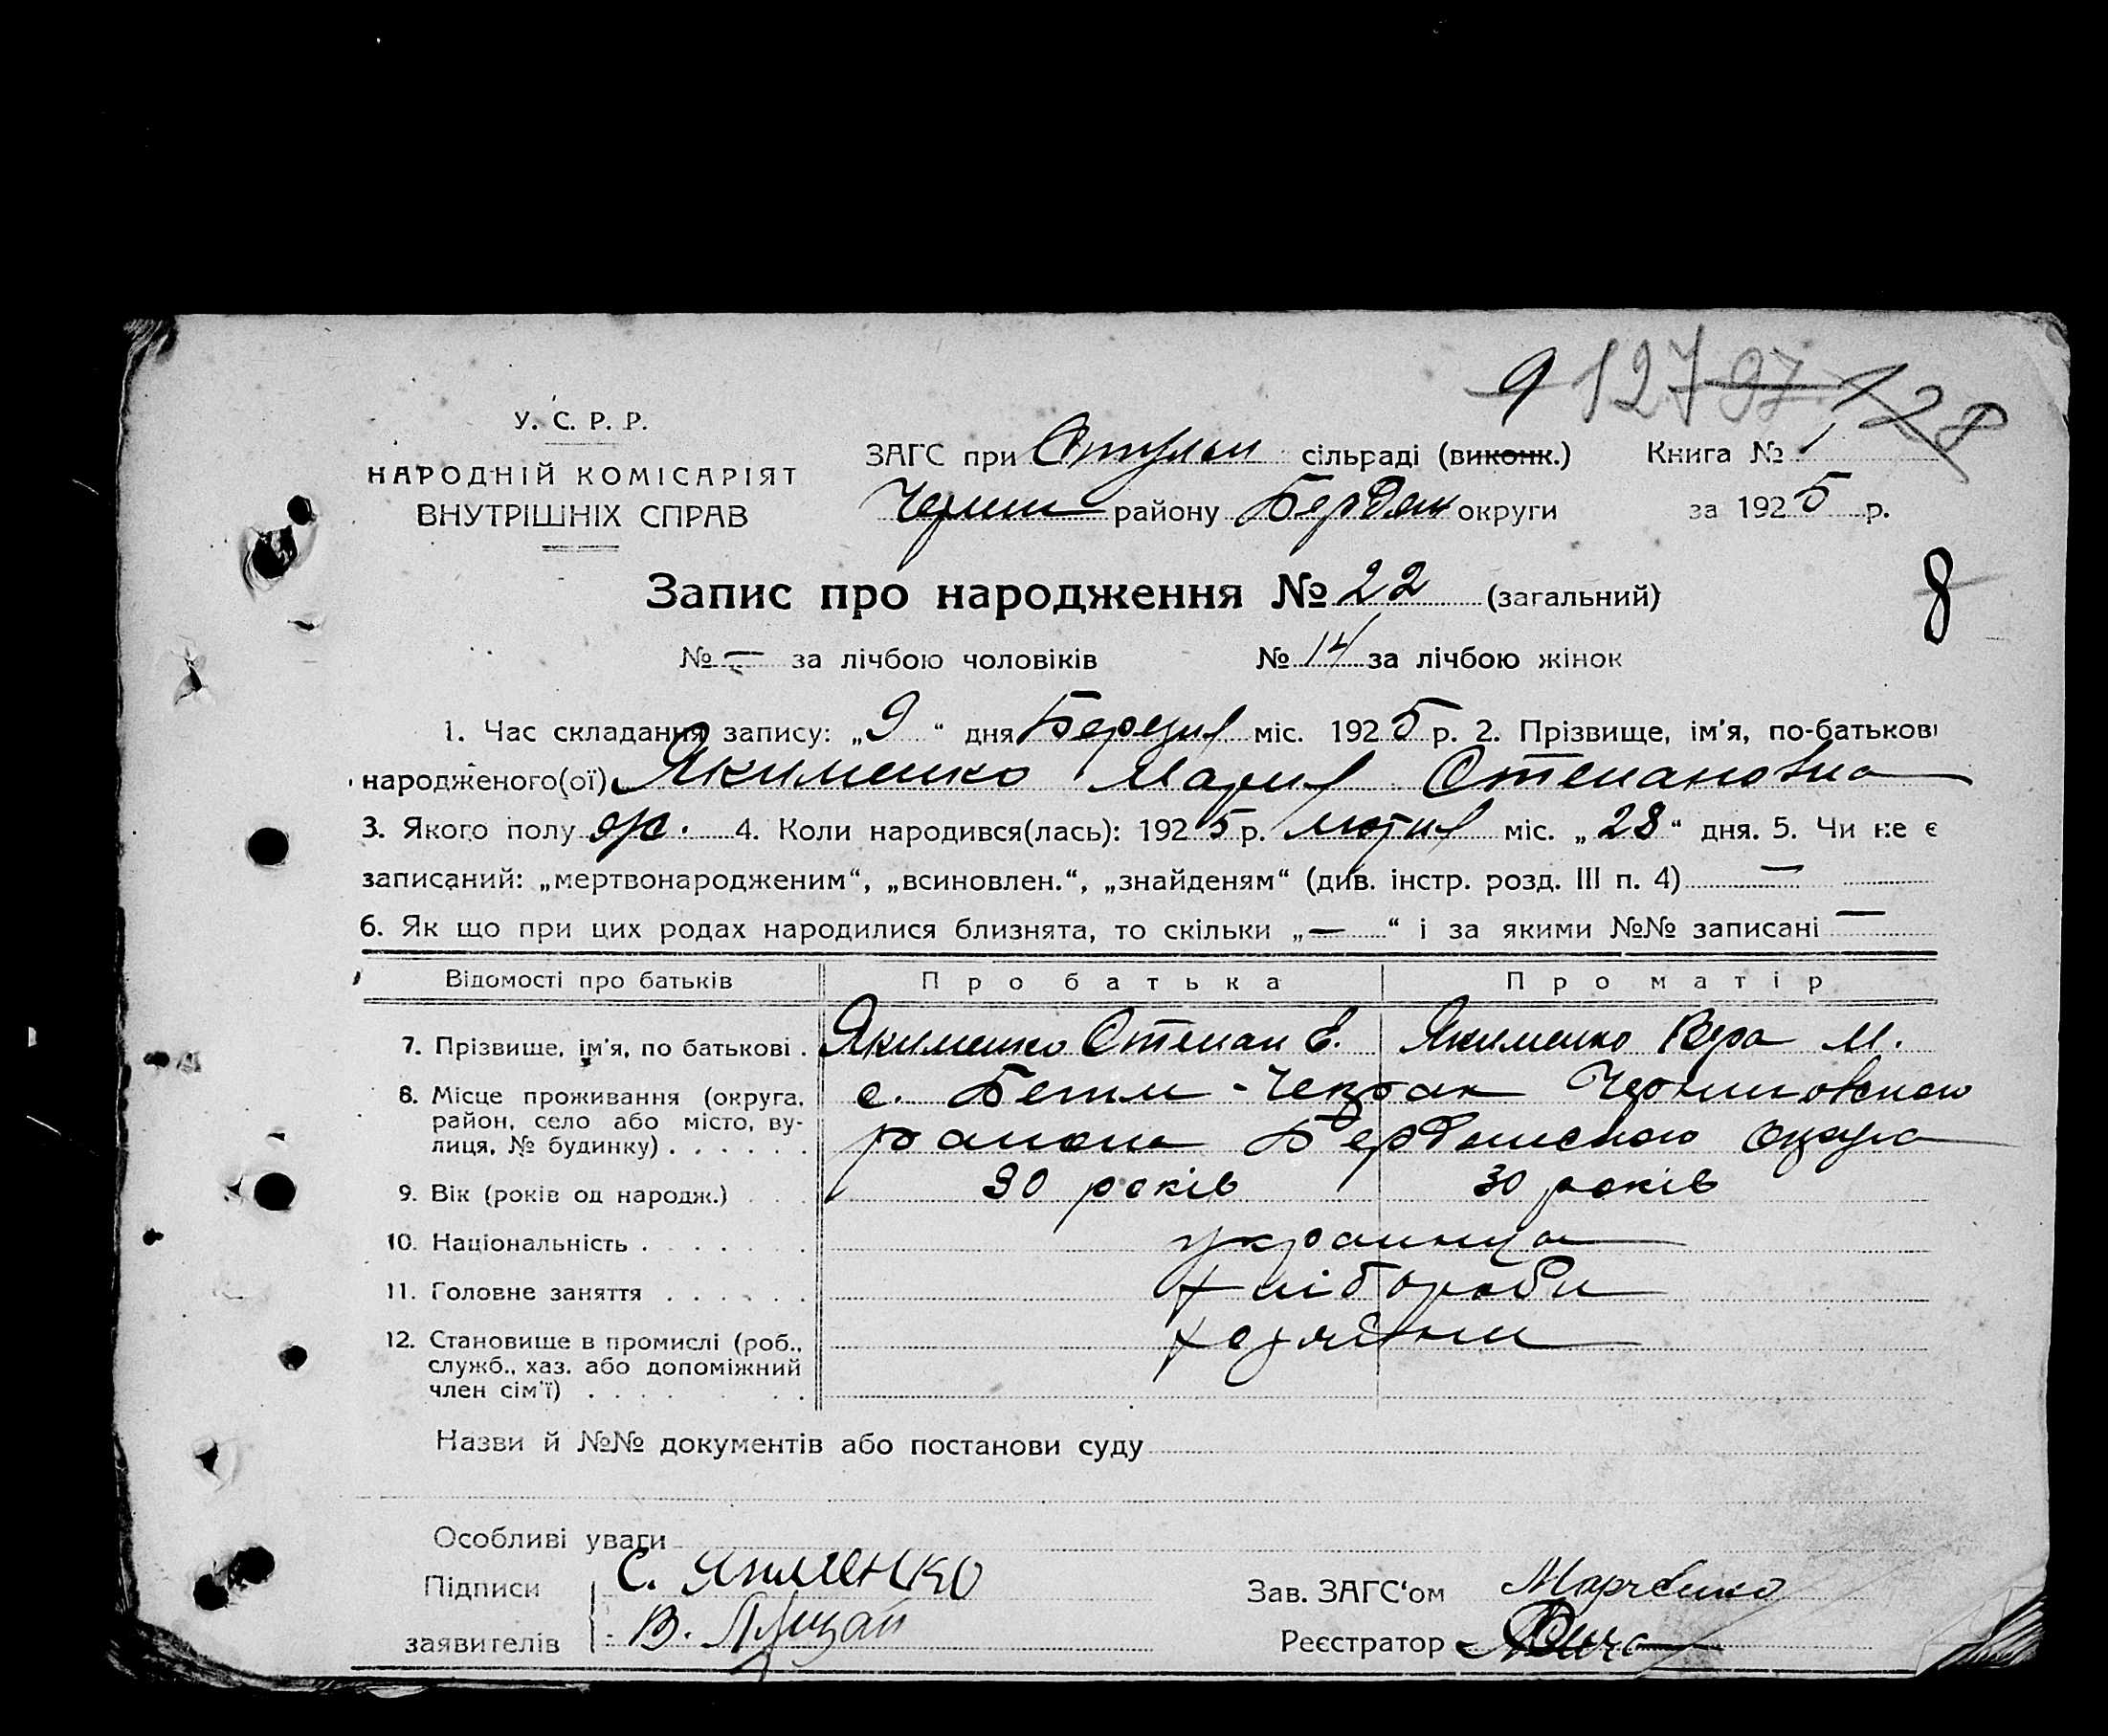 9 127 97 128
У. С. Р. Р.
НАРОДНІЙ КОМІСАРІЯТ
ВНУТРІШНІХ СПРАВ
ЗАГС при сільраді (виконк.) Книга № 1
району Бердян округи за 1925 р.
8
Запис про народження № 22 (загальний)
№ — за лічбою чоловіків № 14 за лічбою жінок
1. Час складання запису: „9“ дня Березня міс. 1925 р. 2. Прізвище, ім'я, по-батькові
народженого(ої) Якименко Мария Степановна
3. Якого полу ж. 4. Коли народився(лась): 1925 р. лютня міс. „28“ дня. 5. Чи не є
записаний: „мертвонародженим“, „всиновлен.“, „знайденям“ (див. інстр. розд. III п. 4) —
6. Як що при цих родах народилися близнята, то скільки „—“ і за якими №№ записані —
Відомості про батьків Про батька Про матір
7. Прізвище, ім'я, по батькові . Якименко Степан Е. Якименко Вера М.
8. Місце проживання (округа, с.
район, село або місто, ву-
лиця, № будинку) . . . . . .
9. Вік (років од народж.) . . . 30 років 30 років
10. Національність . . . . . . . украинца
11. Головне заняття . . . . . . хлібороби
12. Становище в промислі (роб.,
служб., хаз. або допоміжний
член сім'ї) . . . . . . .
Назви й №№ документів або постанови суду
Особливі уваги
Підписи С. Якименко Зав. ЗАГС'ом Марченко
заявителів В. Реєстратор